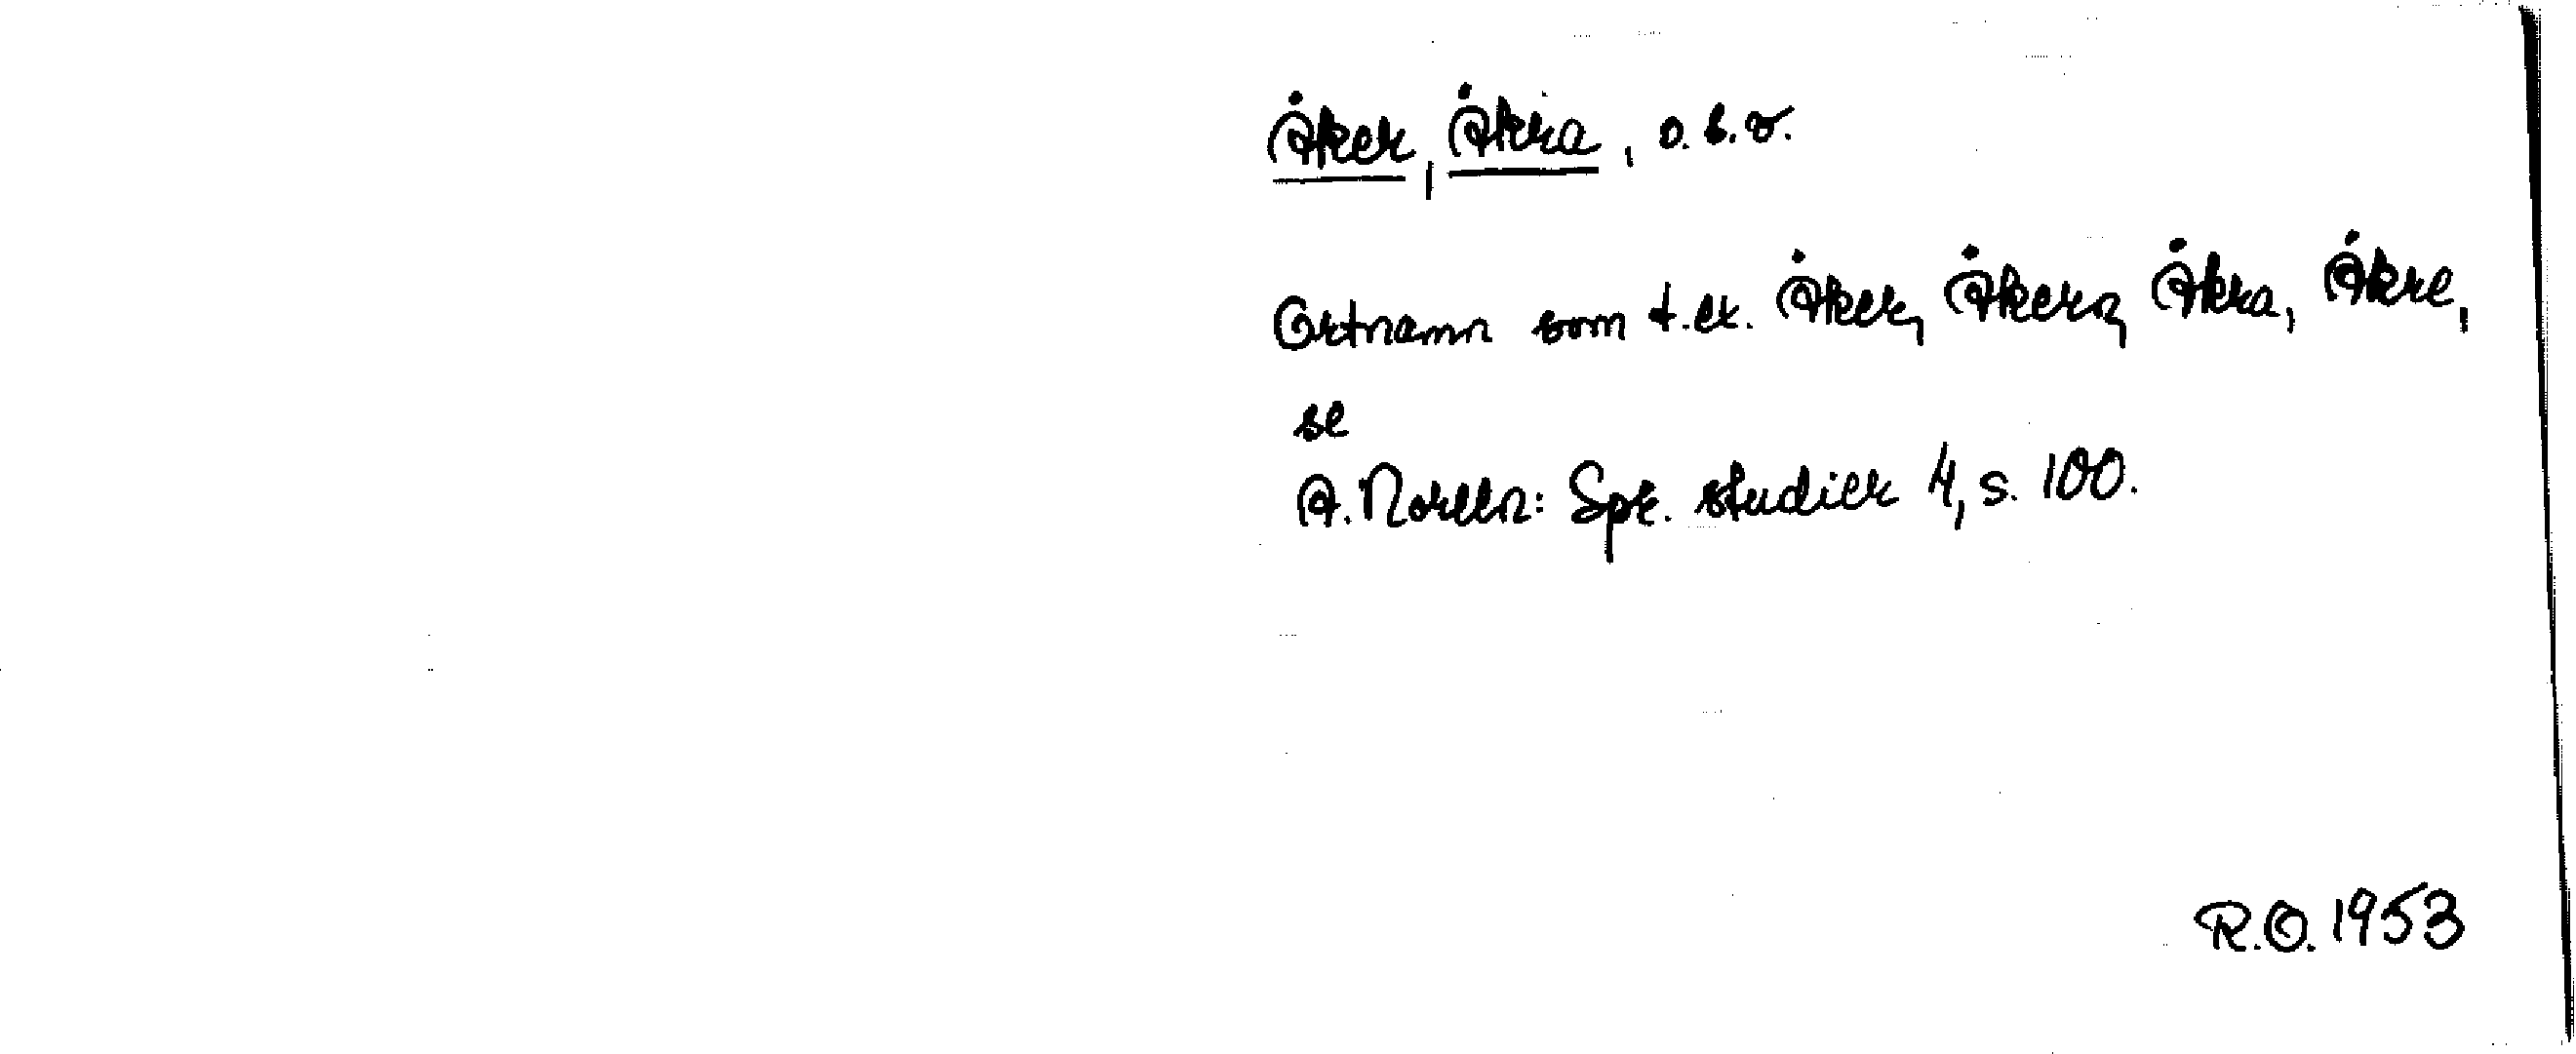 Åker, Åkra, o.s.v.
Ortnamn som t.ex. Åker, Åkern, Åkra, Åkre,
se
A. Noreen: Spr. studier 4, s. 100.
R.O. 1953